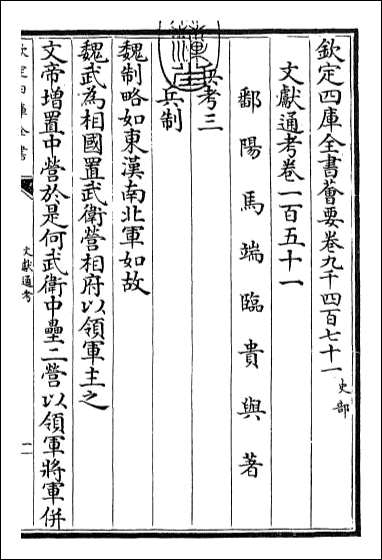 欽定四庫全書薈要卷九千四百七十一 史部
文獻通考卷一百五十一
鄱陽馬端臨貴與著
兵考三
兵制
魏制略如東漢南北軍如故
魏武為相國置武衛營相府以領軍主之
文帝增置中營於是何武衛中壘二營以領軍將軍併
欽定四庫全書
文獻通考